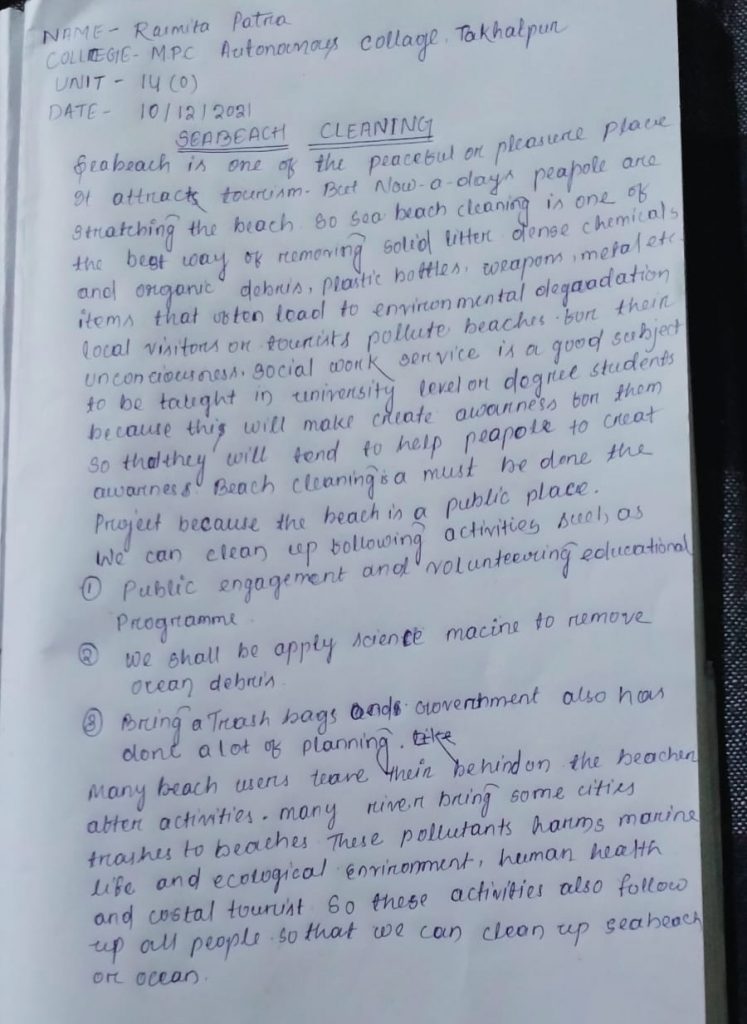 NAME- Rasmita Patra
COLLEGE- M.P.C Autonomoys collage, Takhatpur
UNIT - 14 (O)
DATE - 10/12/2021
SEABEACH CLEANING
Seabeach is one of the peaceful or pleasure place
It attracts tourism. But Now-a-days peapole are
stratching the beach. So sea beach cleaning is one of
the best way of removing solid litter dense chemicals
and organic debris, plastic bottles, weapons, metal etc.
items that often lead to environmental degaadation
local visitors or tourists pollute beaches for their
unconciousness. Social work service is a good subject
to be taught in university level or degree students
because this will make create awarness for them
so that they will tend to help peapole to creat
awarness. Beach cleaning is a must be done the
Project because the beach is a public place.
We can clean up following activities such as
① Public engagement and volunteering educational
Programme
② We shall be apply science macine to remove
ocean debris.
③ Bring a Trash bags and Government also has
done a lot of planning.
Many beach users leave their behind on the beaches
after activities. many river bring some cities
trashes to beaches These pollutants harms marine
life and ecological environment, human health
and costal tourist. So these activities also follow
up all people. so that we can clean up seabeach
or ocean.